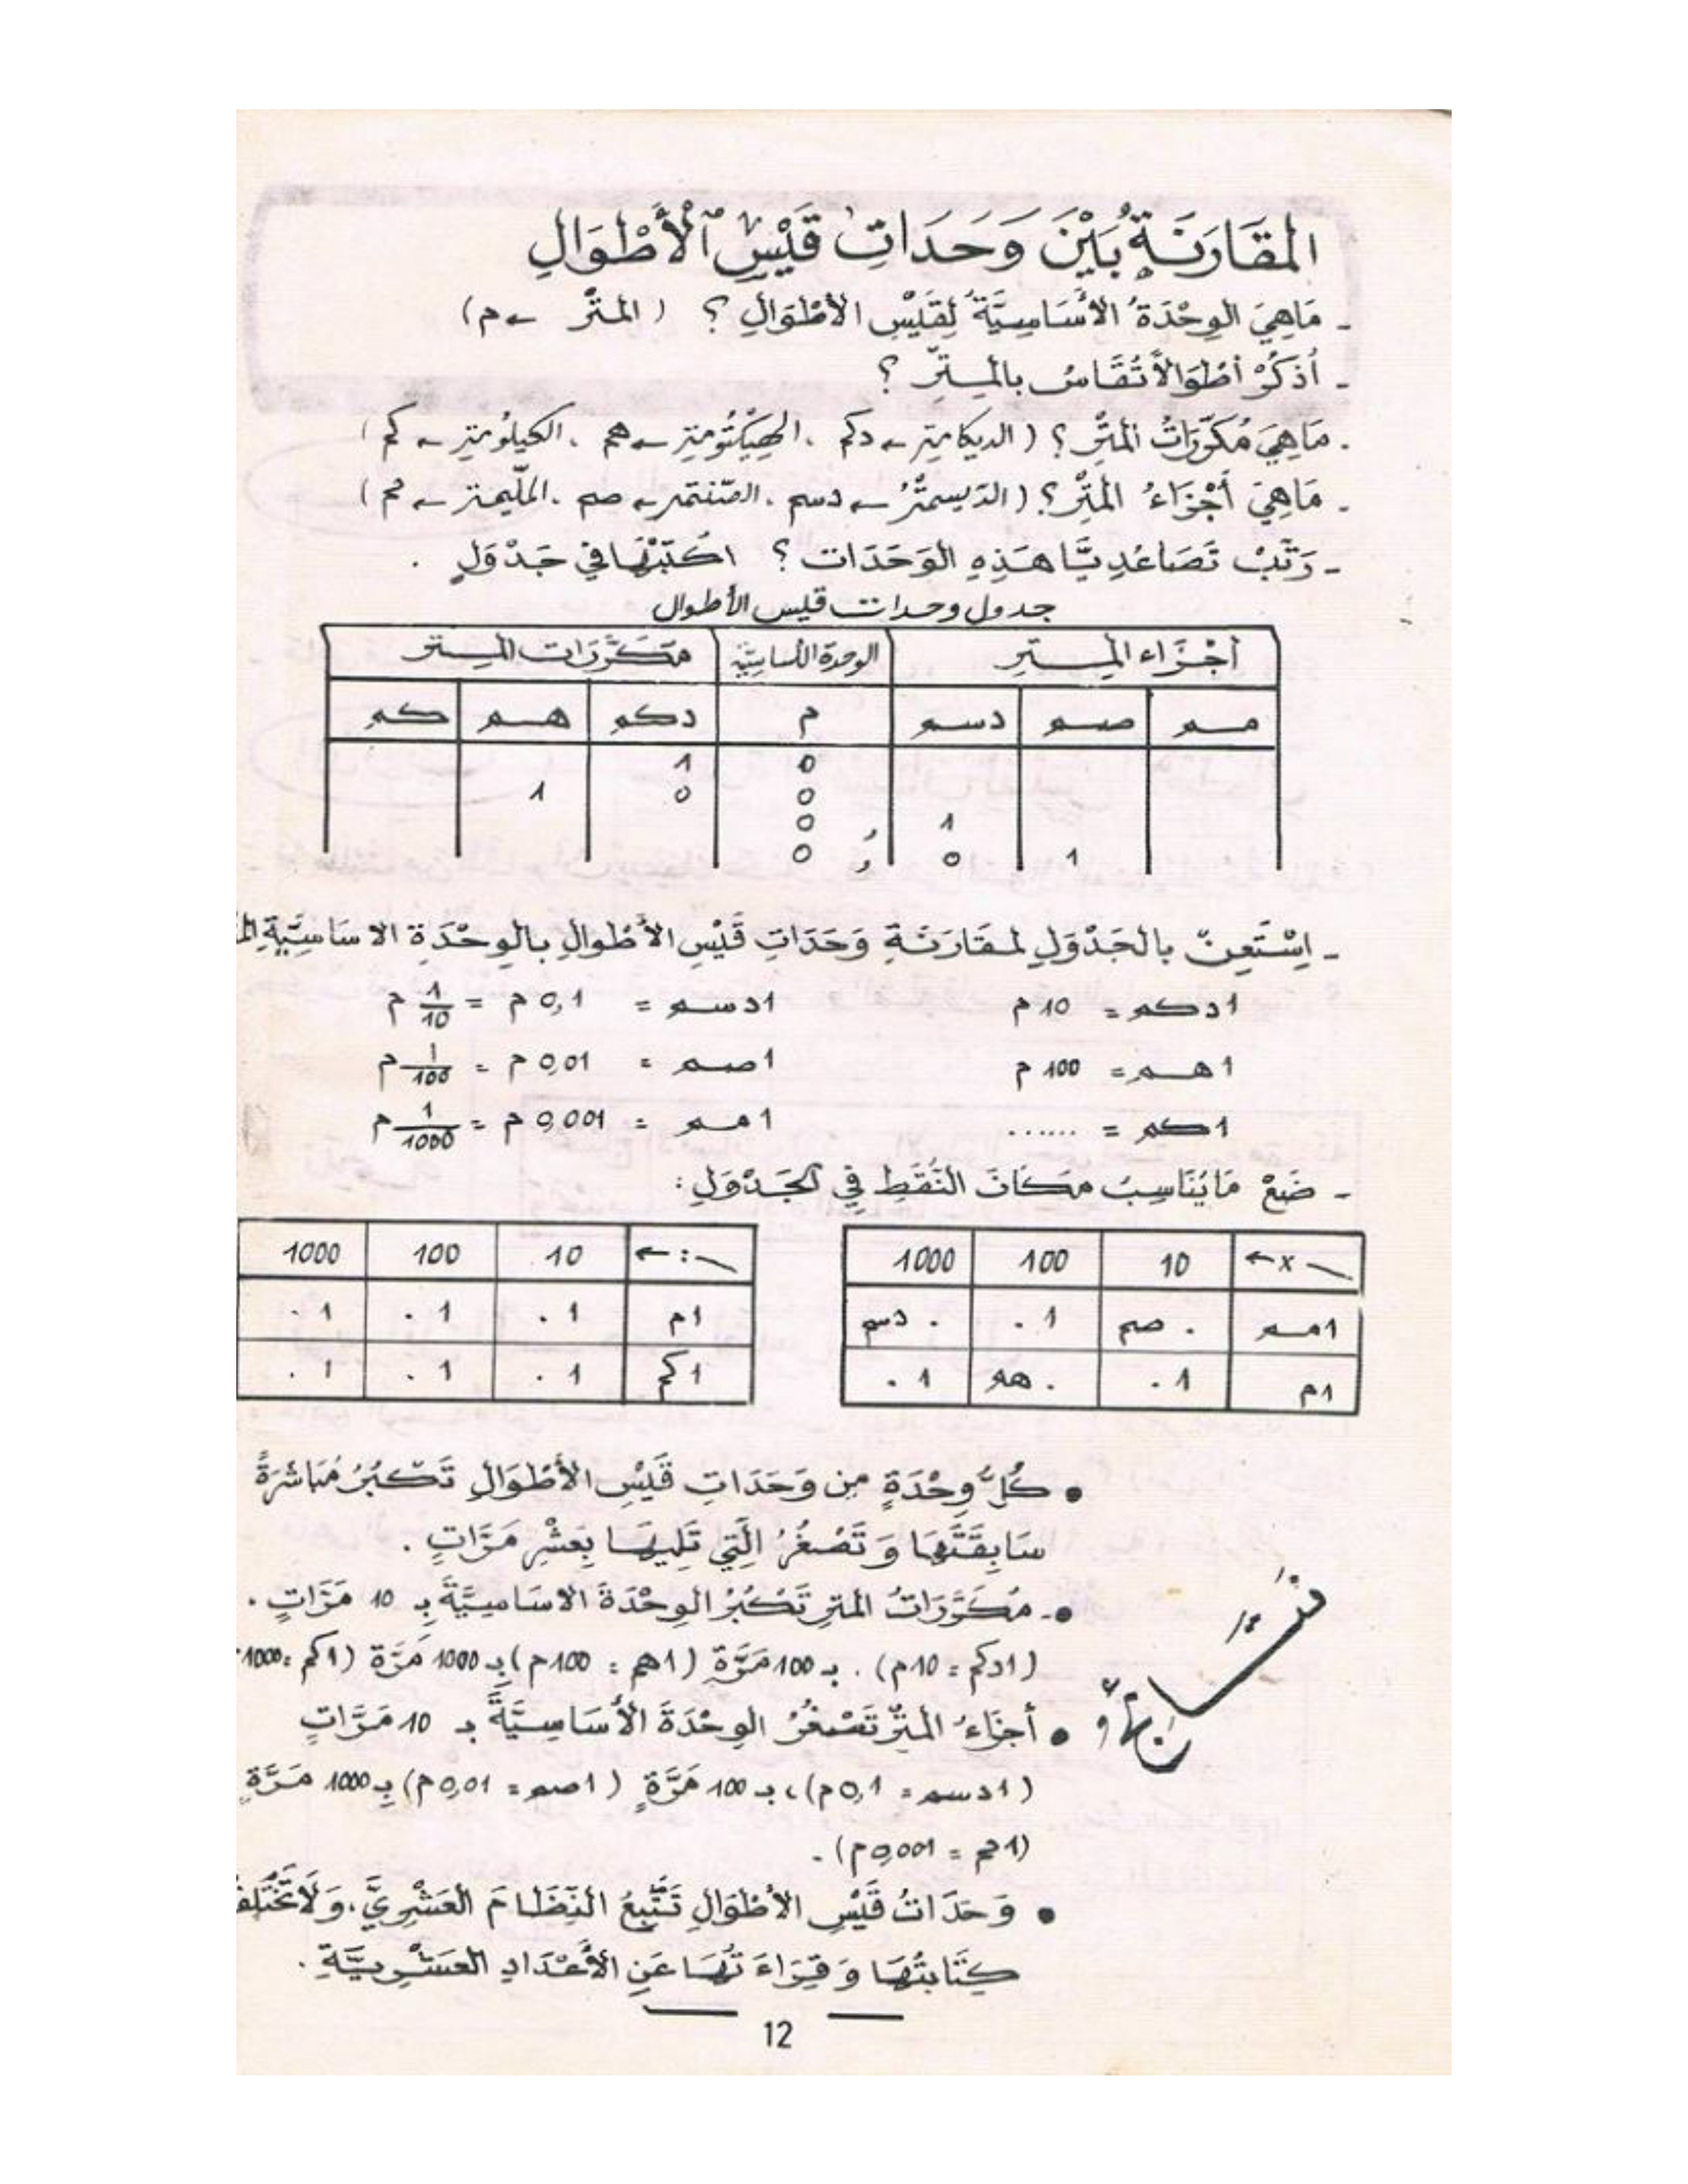 المقَارَنَةُ بَيْنَ وَحَدَاتِ قَيْسِ الْأَطْوَالِ
- مَاهِيَ الوِحْدَةُ الأَسَاسِيَّةُ لِقَيْسِ الأَطْوَالِ ؟ ( المتْر ← م)
- أُذكُرْ أطْوَالاً تُقَاسُ بالمِيتْرِ ؟
- مَاهِيَ مُكَرَّرَاتُ المِتْرِ ؟ ( الديكامتر ← دكم ، الهِيكْتُومتِر ← هم ، الكيلُومتِر ← كم )
- مَاهِيَ أَجْزَاءُ المِتْرِ ؟ ( الدّيسمتْرُ ← دسم ، الصّنتمتر ← صم ، الملّيمتر ← مم )
- رَتِّبْ تَصَاعُدِيًّا هَذِهِ الوَحَدَات ؟ اكْتُبْهَا في جَدْوَلٍ .
جدول وحدات قيس الأطوال
أجْزَاء المِيتر | الوحدة الأساسيّة | مكَرَّرَات الميتر
مم | صم | دسم | م | دكم | هم | كم
0 1
0 0 1
1 , 0
1 0 , 0
- اِسْتَعِنْ بالجَدْوَلِ لمقَارَنَةِ وَحَدَاتِ قَيْسِ الأَطْوالِ بالوِحْدَةِ الاسَاسِيَّةِ
1دكم = 10 م 1دسم = 0,1 م = 1/10 م
1هم = 100 م 1صم = 0,01 م = 1/100 م
1كم = ...... 1مم = 0,001 م = 1/1000 م
- ضَعْ مَا يُنَاسِبُ مكَانَ النُّقَطِ فِي الجَدْوَلِ :
× ← | 10 | 100 | 1000
1مم | . صم | 1 . | . دسم
1م | 1 . | . هم | 1 .
: ← | 10 | 100 | 1000
1م | 1 . | 1 . | 1 .
1كم | 1 . | 1 . | 1 .
• كُلُّ وِحْدَةٍ مِن وَحَدَاتِ قَيْسِ الأَطْوَالِ تَكْبُرُ مُبَاشَرَةً
سَابِقَتَهَا وَ تَصْغُرُ الَّتِي تَلِيهَا بِعَشْرِ مَرَّاتٍ .
•- مُكَرَّرَاتُ المترِ تَكْبُرُ الوِحْدَةَ الاسَاسِيَّةَ بِـ 10 مَرَّاتٍ .
(1دكم = 10م) . بـ 100 مَرَّةٍ (1هم = 100م) بِـ 1000 مَرَّة (1كم = 1000
• أجزَاءُ المترِ تَصْغُرُ الوِحْدَةَ الأَسَاسِيَّةَ بـ 10 مَرَّاتٍ
(1دسم = 0,1م)، بـ 100 مَرَّةٍ (1صم = 0,01م) بِـ 1000 مَرَّةٍ
(1مم = 0,001م) .
• وَحَدَاتُ قَيْسِ الأطْوَالِ تَتْبِعُ النِّظَامَ العَشْرِيَّ، وَلَا تَخْتَلِفُ
كِتَابتُهَا وَ قِرَاءَتُهَا عَنِ الأَعْدَادِ العَشْرِيَّةِ .
12